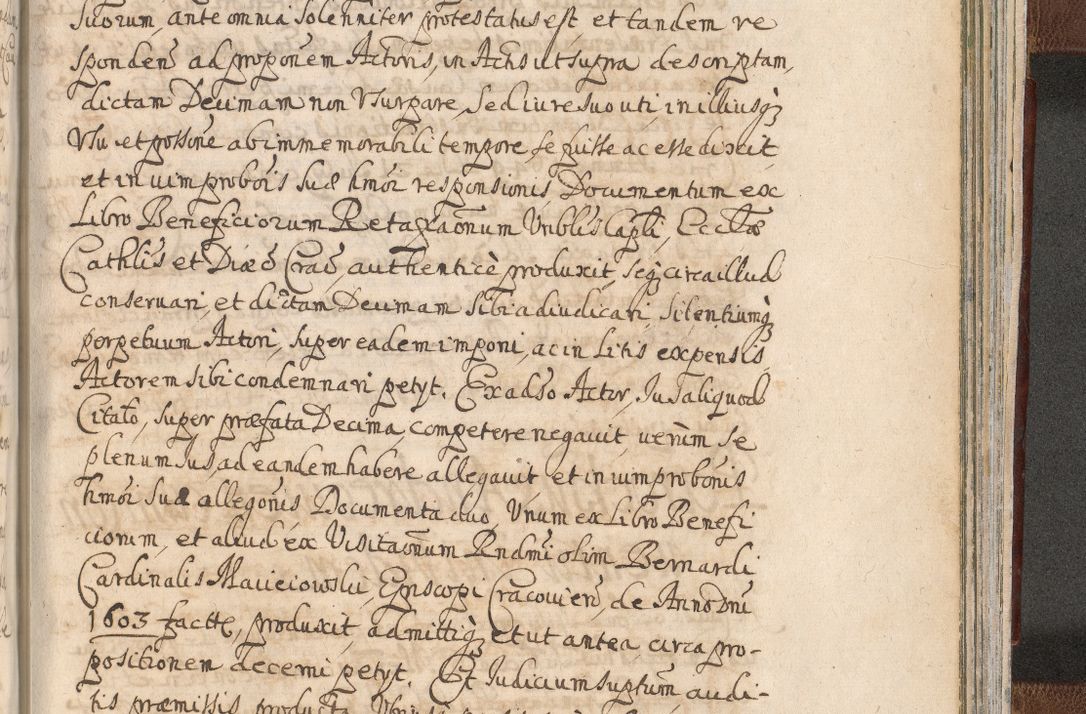 suorum, ante omnia solenniter protestatus est, et tandem re
sponden̄ ad propōnem Actoris, in Actis ut supra descriptam,
dictam Decimam non Usurpare, sed iure suo uti, in illiusq
Usu et possōne ab immemorabili tempore se fuisse ac esse dixit,
et in vim probōis suæ hmōi responsionis, Documentum ex
Libro Beneficiorum Retaxāonum Vnblis Capli, Ecclæ
Cathlis et Diæc̄ Crac̄, authenticè produxit, seq circa illud
conseruari, et dictam Decimam sibi adiudicari, silentiumq
perpetuum Actori, super eadem imponi, ac in Litis expensis
Actorem sibi condemnari petyt. Ex adso Actor, Jus aliquod
Citato, super præfata Decima, competere negauit, verùm se
plenum Jus, ad eandem habere allegauit, et in vim probōnis
hmōi suæ allegōnis Documenta duo, Vnum ex Libro Benefi
ciorum, et aliud ex Visitāonum Rndmi olim Bernardi
Cardinalis Macieiowski, Episcopi Cracouien̄, de Anno Dni
1603 factæ, produxit, admittiq, et ut antea, circa pro-
positionem decerni petyt. Et Judicium suptum, audi-
tis præmissis producta